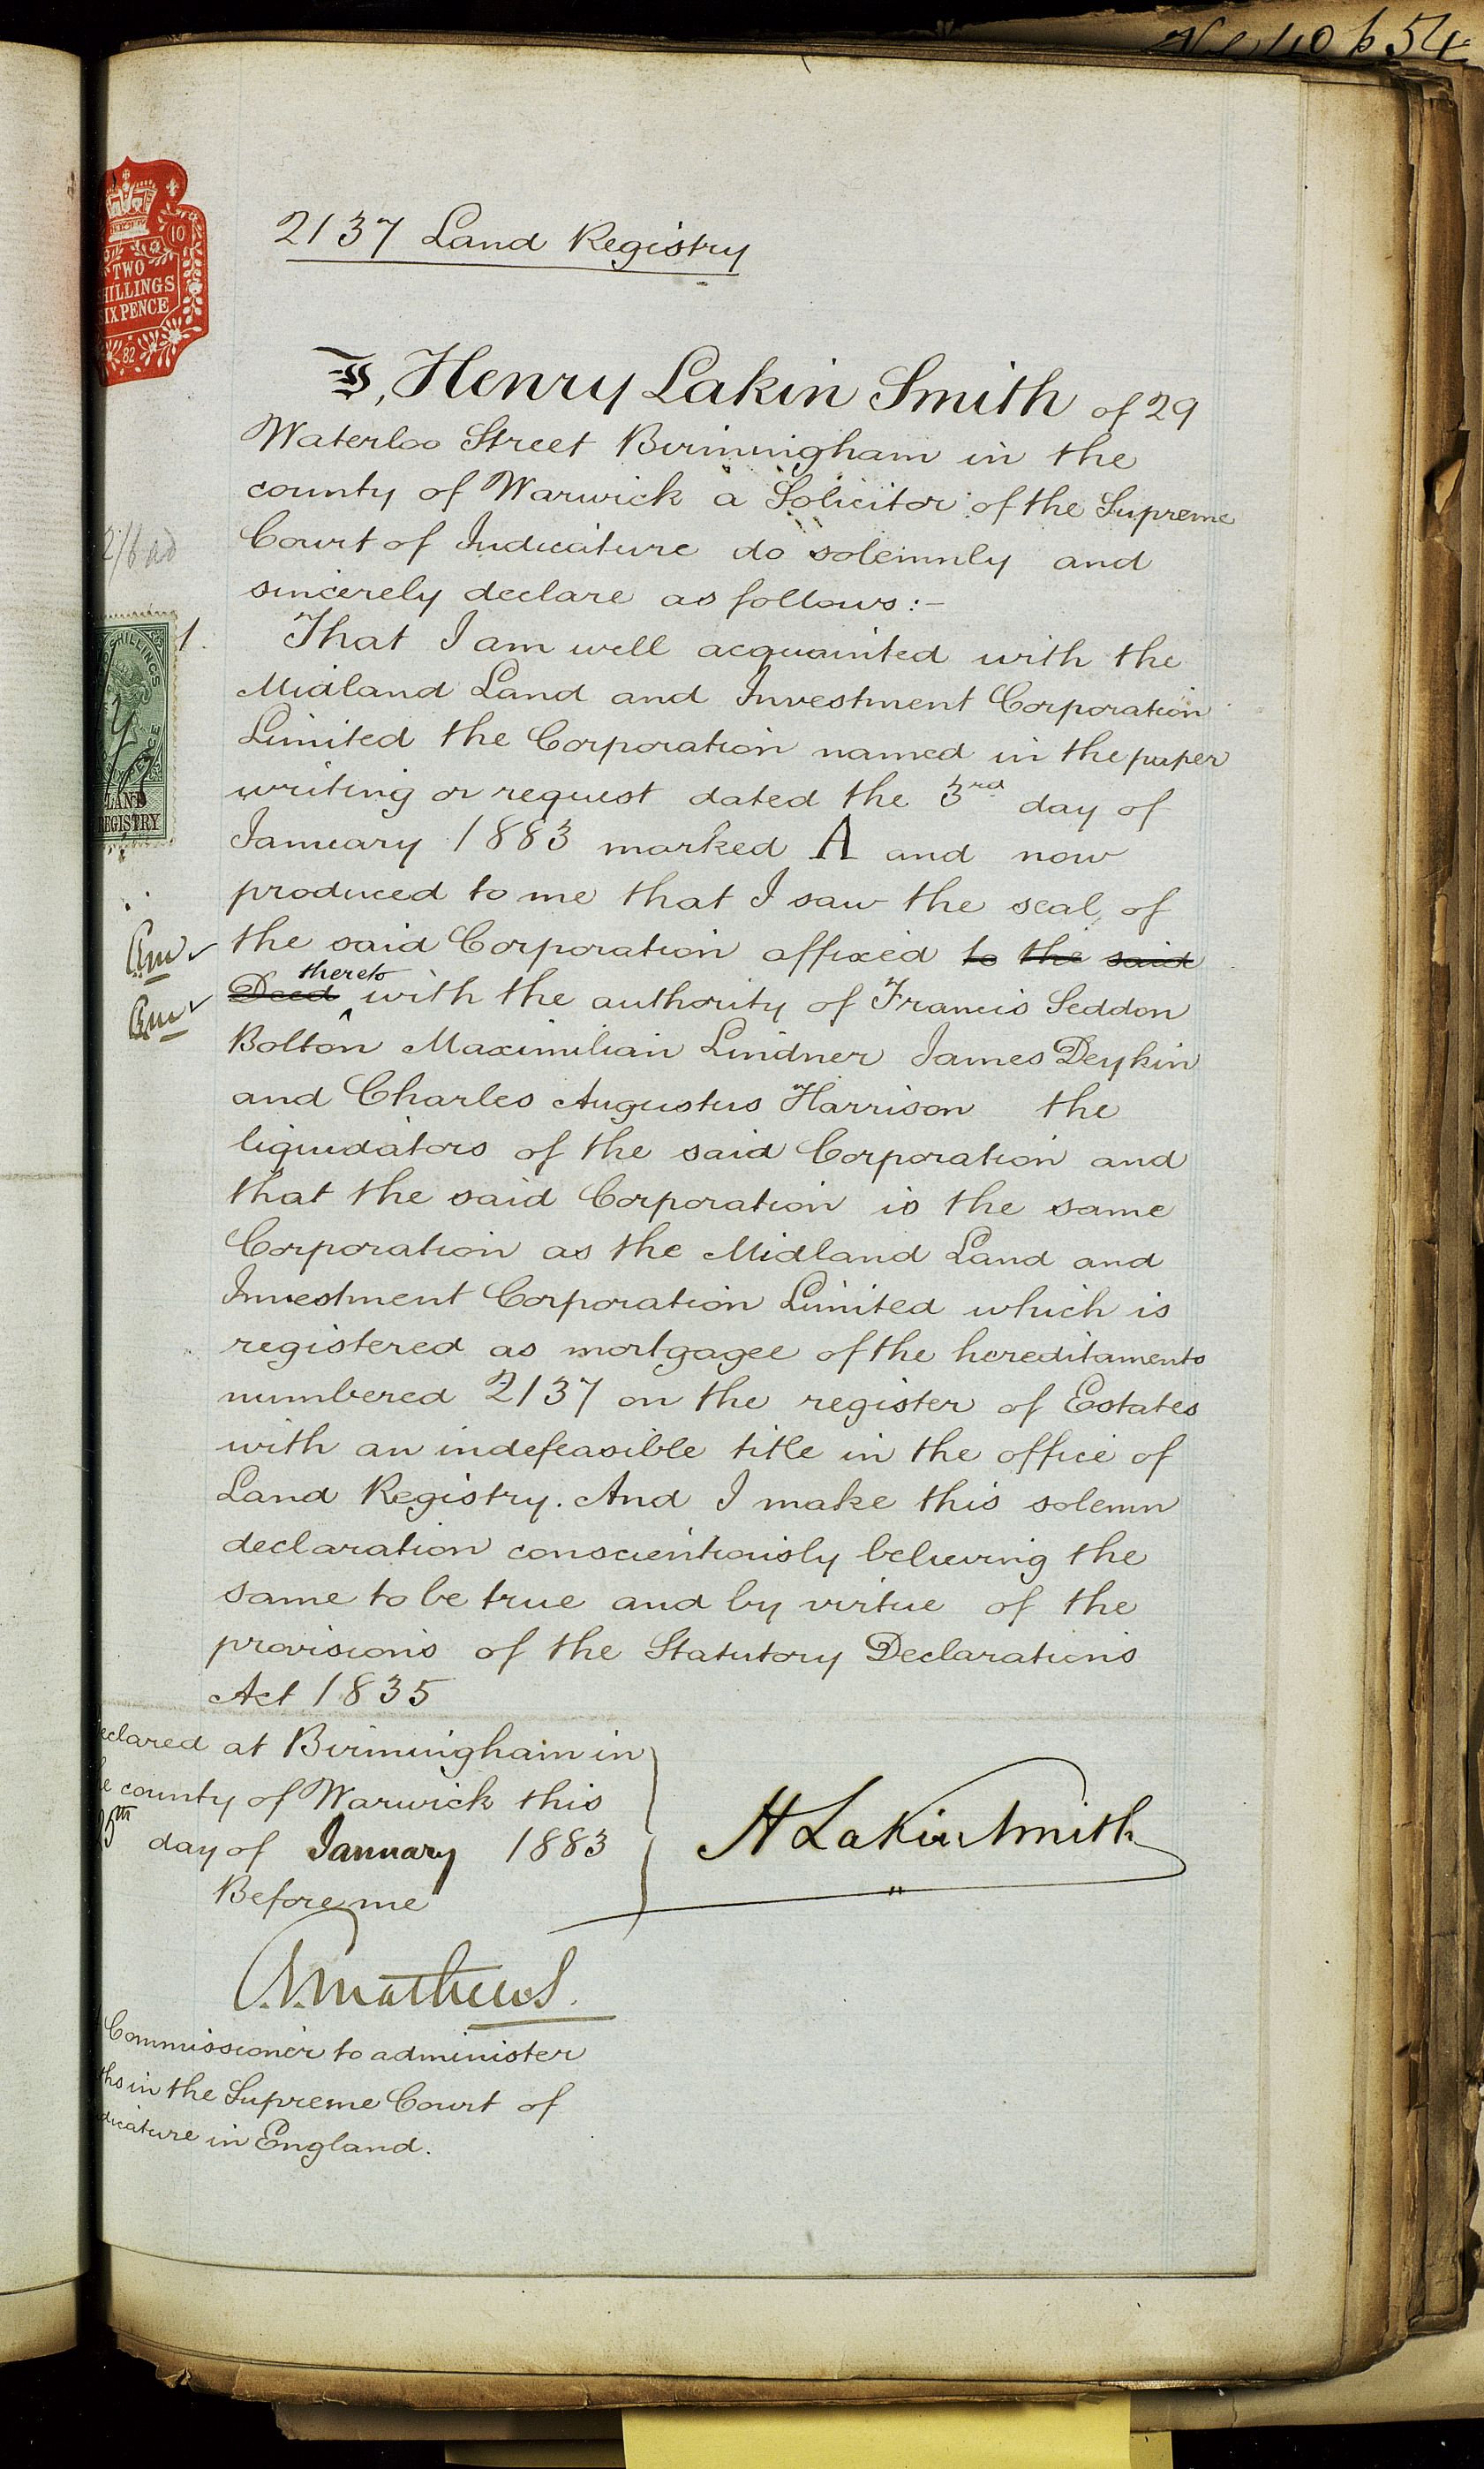 2137 Land Registry
10
TWO
HILLINGS
IXPENCE
82
I, Henry Lakin Smith of 29
Waterloo Street Birmingham in the
county of Warwick a Solicitor of the Supreme
Court of Judicature do solemnly and
sincerely declare as follows:-
1. That I am well acquainted with the
Midland Land and Investment Corporation
Limited the Corporation named in the paper
writing or request dated the 3rd day of
January 1883 marked A and now
produced to me that I saw the seal of
the said Corporation affixed to the said
Deed thereto with the authority of Francis Seddon
Bolton Maximilian Lindner James Deykin
and Charles Augustus Harrison the
liquidators of the said Corporation and
that the said Corporation is the same
Corporation as the Midland Land and
Investment Corporation Limited which is
registered as mortgagee of the hereditaments
numbered 2137 on the register of Estates
with an indefeasible title in the office of
Land Registry. And I make this solemn
declaration conscientiously believing the
same to be true and by virtue of the
provisions of the Statutory Declarations
Act 1835
SHILLINGS
LAND
REGISTRY
eclared at Birmingham in
e county of Warwick this
5th day of January 1883
Before me
H Lakin Smith
Mathews.
Commissioner to administer
ths in the Supreme Court of
dicature in England.